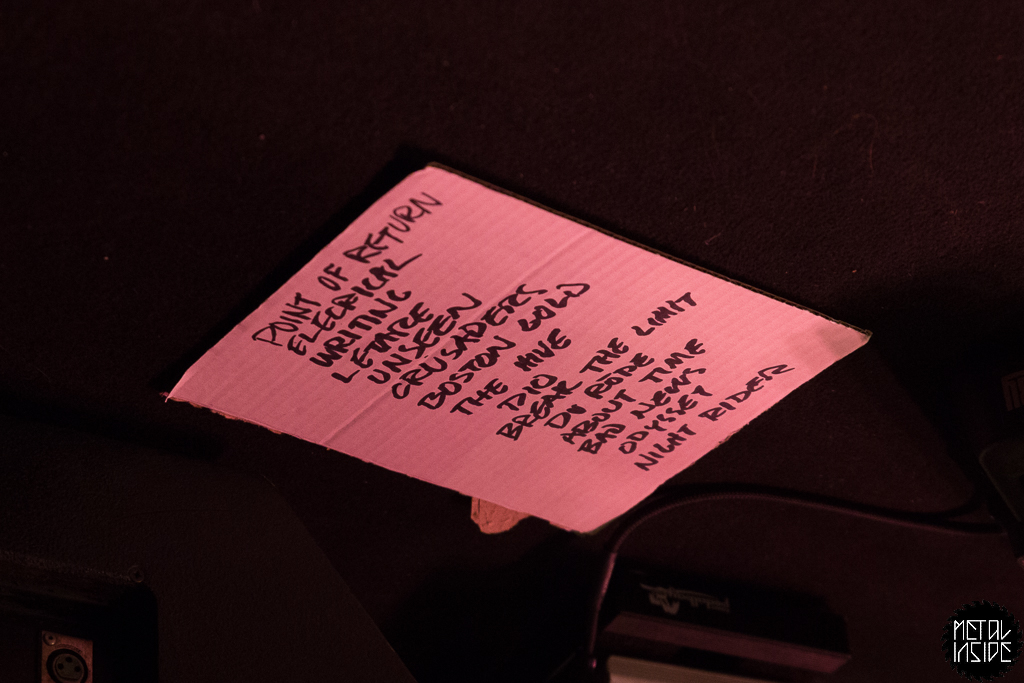 POINT OF RETURN
ELECRICAL
WRITING
LETMRE
UNSEEN
CRUSADERS
BOSTON GOLD
THE HIVE
DIO
BREAK THE LIMIT
DU RODE
ABOUT TIME
BAD NEWS
ODYSSEY
NIGHT RIDER
METAL
INSIDE